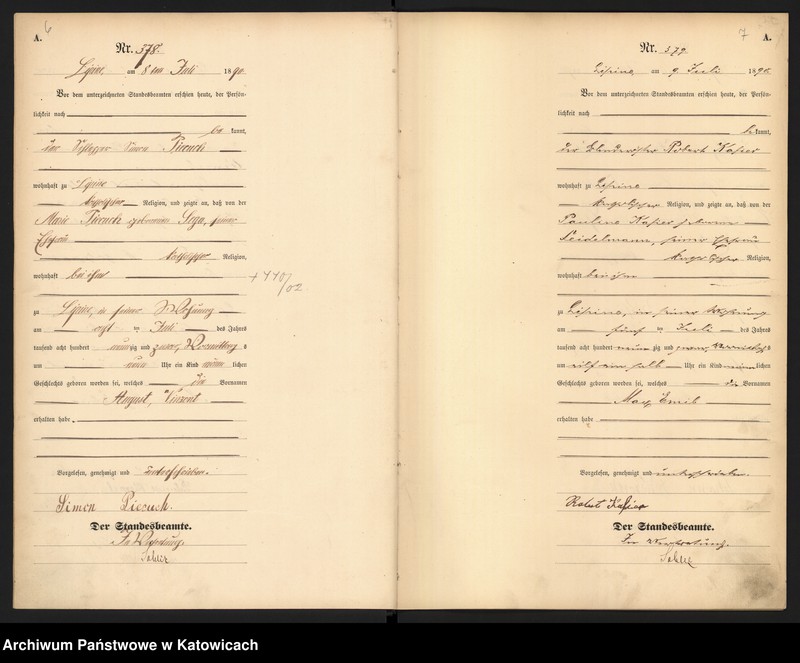 6
A.
Nr. 378.
Lipine, am 8 ten Juli 1890.
Vor dem unterzeichneten Standesbeamten erschien heute, der Persön-
lichkeit nach
be kannt,
der Simon Piecuch
wohnhaft zu Lipine
katholischer Religion, und zeigte an, daß von der
Marie Piecuch geborenen seiner
Ehefrau
katholischer Religion,
wohnhaft bei ihm
zu Lipine, in seiner Wohnung
am Juli des Jahres
tausend acht hundert neun zig und Vormittags
um neun Uhr ein Kind männ lichen
Geschlechts geboren worden sei, welches die Vornamen
August, Vincent
erhalten habe.
Vorgelesen, genehmigt und unterschrieben.
Simon Piecuch.
Der Standesbeamte.
In Vertretung.
7
A.
Nr. 379
Lipine am 9. Juli 1890.
Vor dem unterzeichneten Standesbeamten erschien heute, der Persön-
lichkeit nach
be kannt,
der Robert
wohnhaft zu Lipine
Religion, und zeigte an, daß von der
Pauline geborenen
Seidelmann, seiner Ehefrau
Religion,
wohnhaft bei ihm
zu Lipine, in seiner Wohnung
am fünf ten Juli des Jahres
tausend acht hundert neun zig und Vormittags
um elf ein halb Uhr ein Kind männ lichen
Geschlechts geboren worden sei, welches die Vornamen
Max Emil
erhalten habe
Vorgelesen, genehmigt und unterschrieben.
Robert
Der Standesbeamte.
In Vertretung.
Archiwum Państwowe w Katowicach